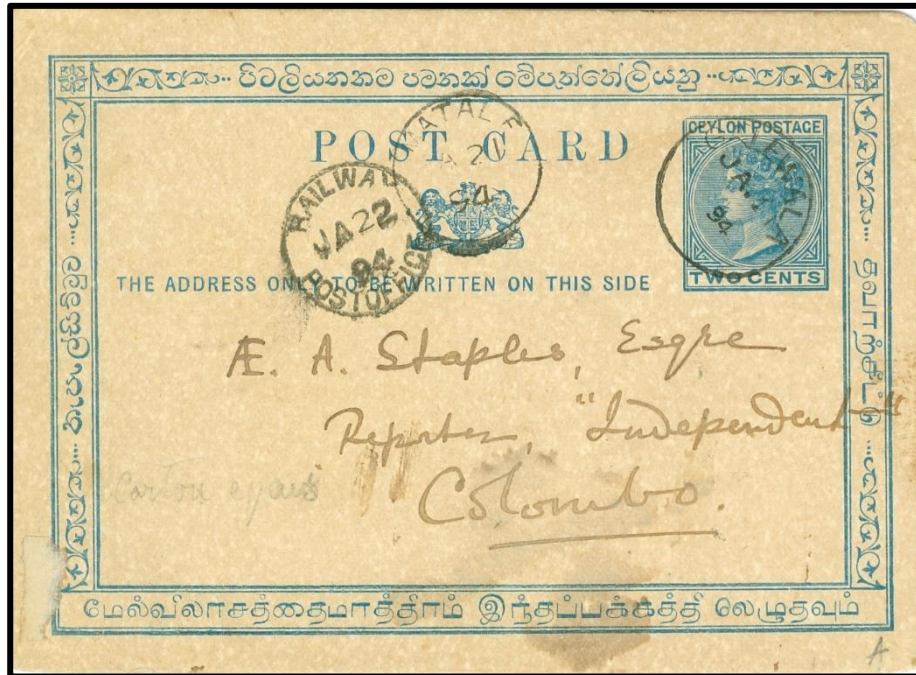 පිටලියනකම පමනක් මේපැත්තේලියනු
POST CARD
CEYLON POSTAGE
TWO CENTS
MATALE
JA 21
94
RAILWAY
JA 22
94
POST OFFICE
JA
94
THE ADDRESS ONLY TO BE WRITTEN ON THIS SIDE
Æ. A. Staples, Esqre
Reporter, "Independent"
Colombo.
மேல்விலாசத்தைமாத்திரம் இந்தப்பக்கத்தி லெழுதவும்
தபாற்சீட்டு
A